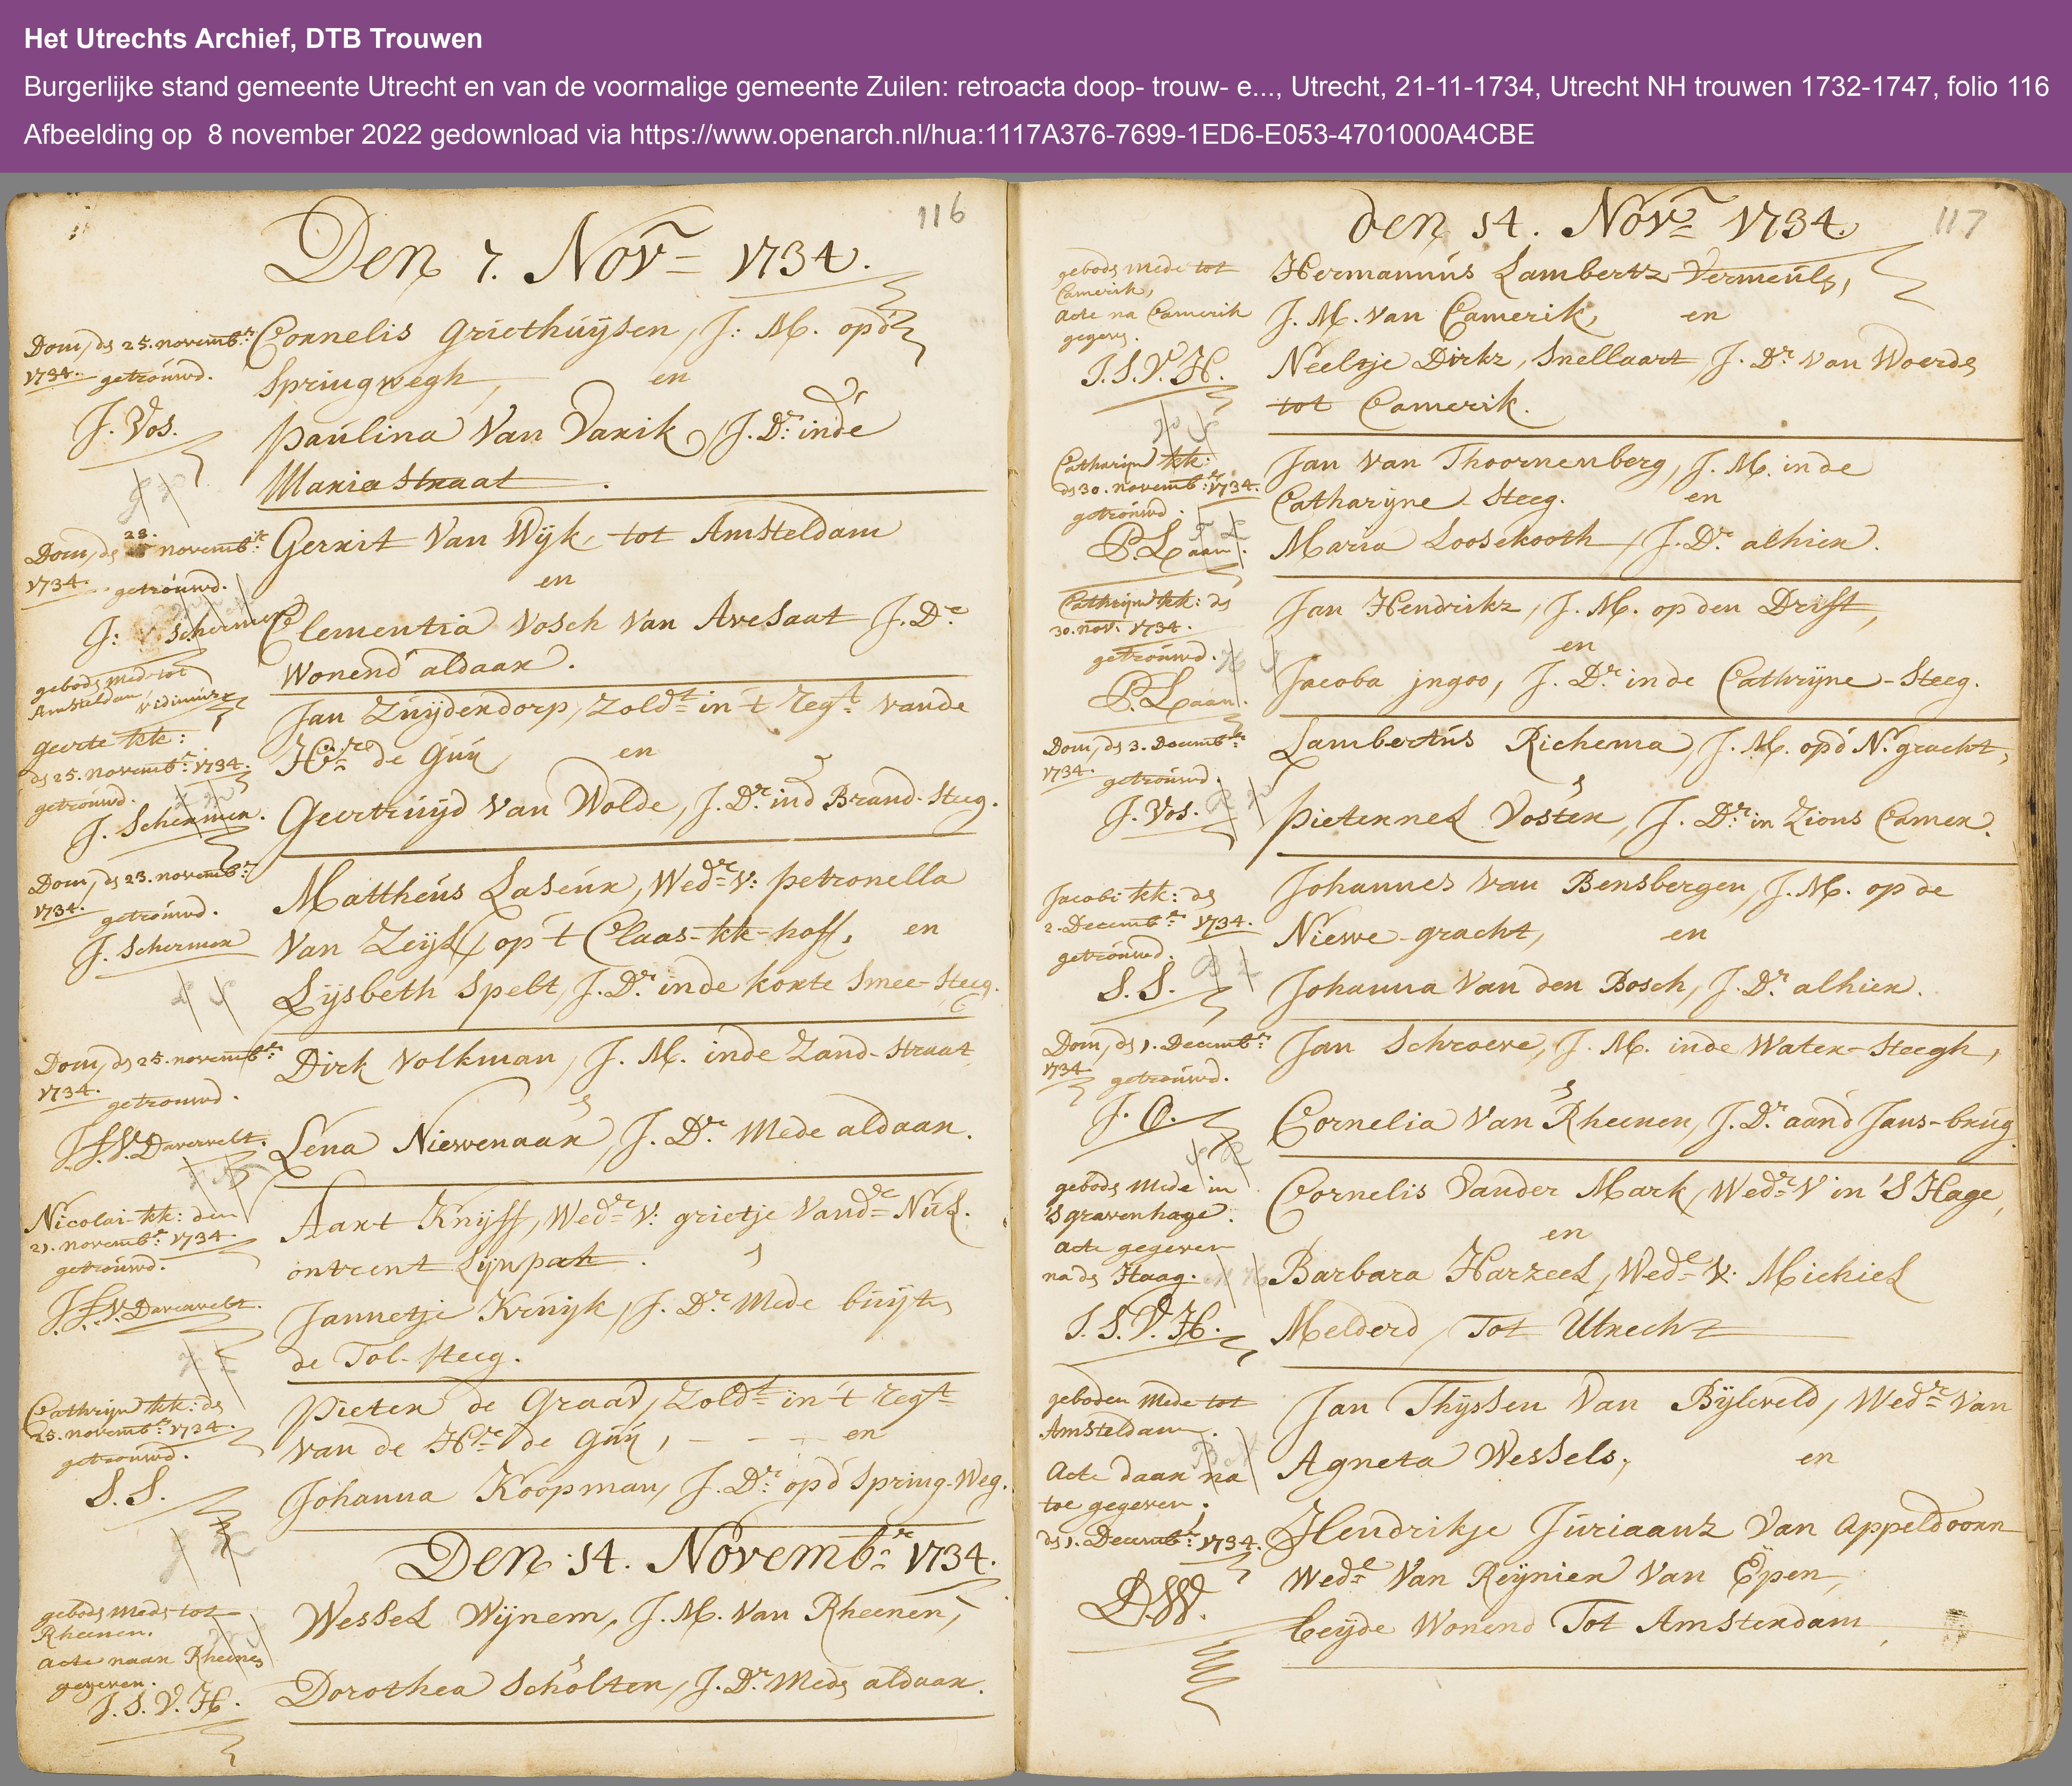 Het Utrechts Archief, DTB Trouwen
Burgerlijke stand gemeente Utrecht en van de voormalige gemeente Zuilen: retroacta doop- trouw- e..., Utrecht, 21-11-1734, Utrecht NH trouwen 1732-1747, folio 116
Afbeelding op 8 november 2022 gedownload via https://www.openarch.nl/hua:1117A376-7699-1ED6-E053-4701000A4CBE
116
Den 7. Novr 1734.
Dom, dn 25. novembr:
1734. getrouwd.
J. Vos.
Cornelis Griethuijsen, J: M. op d'
Springwegh, en
Paulina Van Varik, J. Dr: in de
Maria straat.
Dom, dn 28. novembr:
1734. getrouwd.
J: Schermer
gebodn med tot
Amsteldam,
Gerrit Van Wijk, tot Amsteldam
en
Clementia Vosch Van Avesaat J. Dr
Wonend aldaar.
Geerte kk:
dn 25. novembr: 1734.
getrouwd.
J. Schermer.
Jan Zuijdendorp, Zoldt in 't Regt vande
Hre de Guy en
Geertruijd Van Wolde, J. Dr: in d Brand-Steeg.
Dom, dn 23. novembr:
1734. getrouwd.
J. Schermer
Mattheus Laseur, Wedr V: Petronella
Van Zeijl, op 't Claas-kk-hoff, en
Lijsbeth Spelt, J. Dr: in de korte Smee-Steeg.
Dom, dn 25. novembr:
1734. getrouwd.
J. F. V. Davervelt.
Dirk Volkman, J. M. inde Zand-straat,
Lena Niewenaar, J. Dr: Mede aldaar.
Nicolai-kk: den
21. novembr 1734
getrouwd.
J. F. V. Daverveldt.
Aart Knijff, Wedr V: grietje Vande Nul.
ontrent Lijnpat.
Jannetje Kruijk, J. Dr: Mede buijtn
de Tol-steeg.
Cathrijn kk: dn
25. novembr: 1734.
getrouwd.
S. S.
Pieter de Graaf, Zoldt in 't Regt
van de Hre de Guy, - - - en
Johanna Koopman, J. Dr: op d' Spring-Weg.
Den 14. Novembr: 1734.
gebodn mede tot
Rheenen.
Acte naar Rheenen
gegeven.
J. S. V. H.
Wessel Wijnem, J. M. Van Rheenen,
Dorothea Scholten, J. Dr: Mede aldaar.
117
den 14. Novr 1734.
gebodn mede tot
Camerik,
Acte na Camerik
gegevn.
J. S. V. H.
Hermannus Lambertz Vermeuls,
J. M. Van Camerik, en
Neeltje Dirkz, Snellaart, J. Dr Van Woerdn
tot Camerik.
Catharijn kk:
dn 30. novembr: 1734.
getrouwd.
P. Laan.
Jan Van Thoornenberg, J. M. in de
Catharijne-Steeg. en
Maria Loosekooth, J. Dr: alhier.
Cathrijn kk: dn
30. nov: 1734.
getrouwd.
P. Laan.
Jan Hendrikz, J. M. op den Drift,
en
Jacoba jngoo, J. Dr: in de Cathrijne-Steeg.
Dom, dn 3. Decembr:
1734. getrouwd.
J. Vos.
Lambertus Richema, J. M. op d' N. gracht,
Pieternel Voster, J. Dr: in Zions Camer.
Jacobi-kk: dn
2. Decembr 1734.
getrouwd.
S. S.
Johannes Van Bensbergen, J. M. op de
Niewe-gracht, en
Johanna Van den Bosch, J. Dr: alhier.
Dom, dn 1. Decembr:
1734. getrouwd.
J. O.
Jan Schroeve, J. M. inde Water-Steegh,
Cornelia Van Rheenen, J. Dr: aand Jans-brug.
gebodn Mede in
'S gravenhage.
Acte gegeven
na dn Haag.
J. S. V. H.
Cornelis Vander Mark, Wedr V in 'S Hage,
en
Barbara Harzeel, Wede V: Michiel
Melderd, Tot Utrecht
geboden Mede tot
Amsteldam.
Acte daar na
toe gegeven.
dn 1. Decembr: 1734.
D. W.
Jan Thijssen Van Bijleveld, Wedr Van
Agneta Wessels, en
Hendrikje Juriaanz Van Appeldoorn
Wede Van Reijnier Van Epen,
beijde Wonend Tot Amsterdam